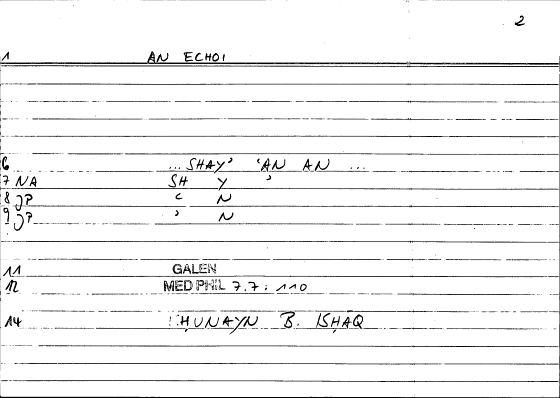 2
1 AN ECHOI
6 ... SHAY' 'AN AN ...
7 NA SH Y '
8 JP ‘ N
9 JP ’ N
11 GALEN
12 MED PHIL 7.7: 110
14 ḤUNAYN B. ISḤAQ